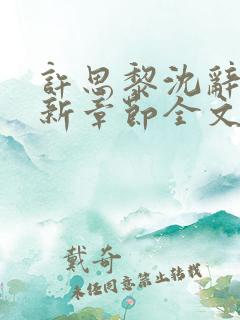 許思黎沈辭
新章節全文
戴奇
未经同意禁止转载